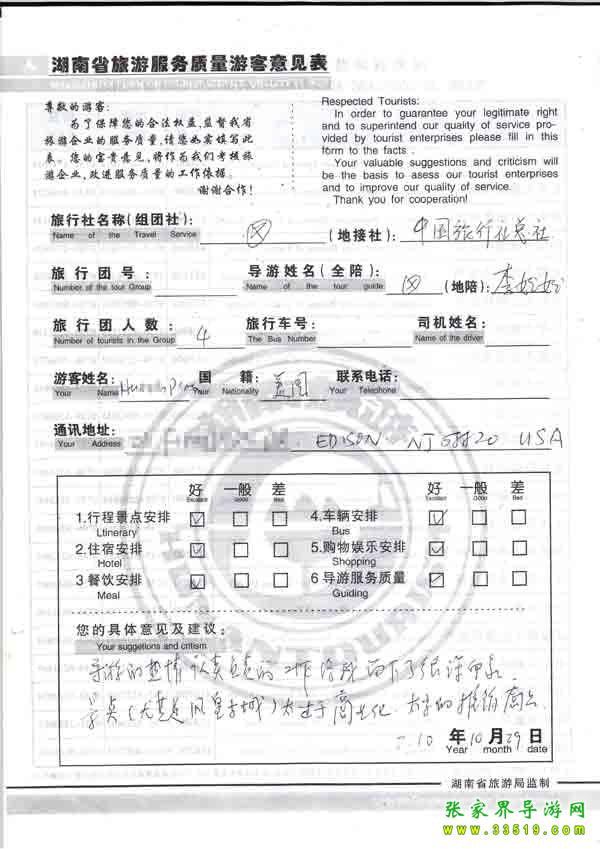 湖南省旅游服务质量游客意见表
尊敬的游客:
为了保障您的合法权益,监督我省
旅游企业的服务质量,请您如实填写此
表。您的宝贵意见,将作为我们考核旅
游企业,改进服务质量的工作依据。
谢谢合作!
Respected Tourists:
In order to guarantee your legitimate right
and to superintend our quality of service pro-
vided by tourist enterprises please fill in this
form to the facts .
Your valuable suggestions and criticism will
be the basis to asess our tourist enterprises
and to improve our quality of service.
Thank you for cooperation!
旅行社名称(组团社): (地接社): 中国旅行社总社
Name of the Travel Service
旅行团号: 导游姓名(全陪): (地陪):李
Number of the tour Group Name of the tour guide
旅行团人数: 4 旅行车号: 司机姓名:
Number of tourists in the Group The Bus Number Name of the driver
游客姓名: 国籍: 美国 联系电话:
Your Name Your Nationality Your Telephone
通讯地址: EDISON NJ 08820 USA
Your Address
好 一般 差 好 一般 差
Excellent Good Bad Excellent Good Bad
1.行程景点安排 4.车辆安排
Ltinerary Bus
2.住宿安排 5.购物娱乐安排
Hotel Shopping
3 餐饮安排 6 导游服务质量
Meal Guiding
您的具体意见及建议:
Your suggetions and critism
导游的热情 认真负责的工作
景点(尤其是凤凰古城)太过于商业化.
10 年 10 月 29 日
Year month date
湖南省旅游局监制
张家界导游网
www.33519.com